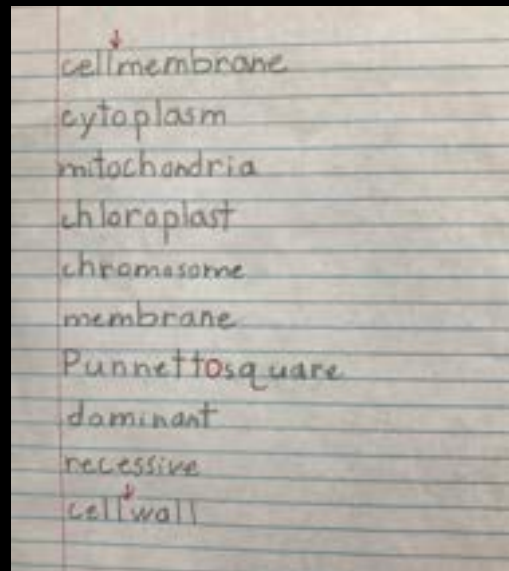 cell membrane
cytoplasm
mitochondria
chloroplast
chromosome
membrane
Punnett square
dominant
recessive
cell wall